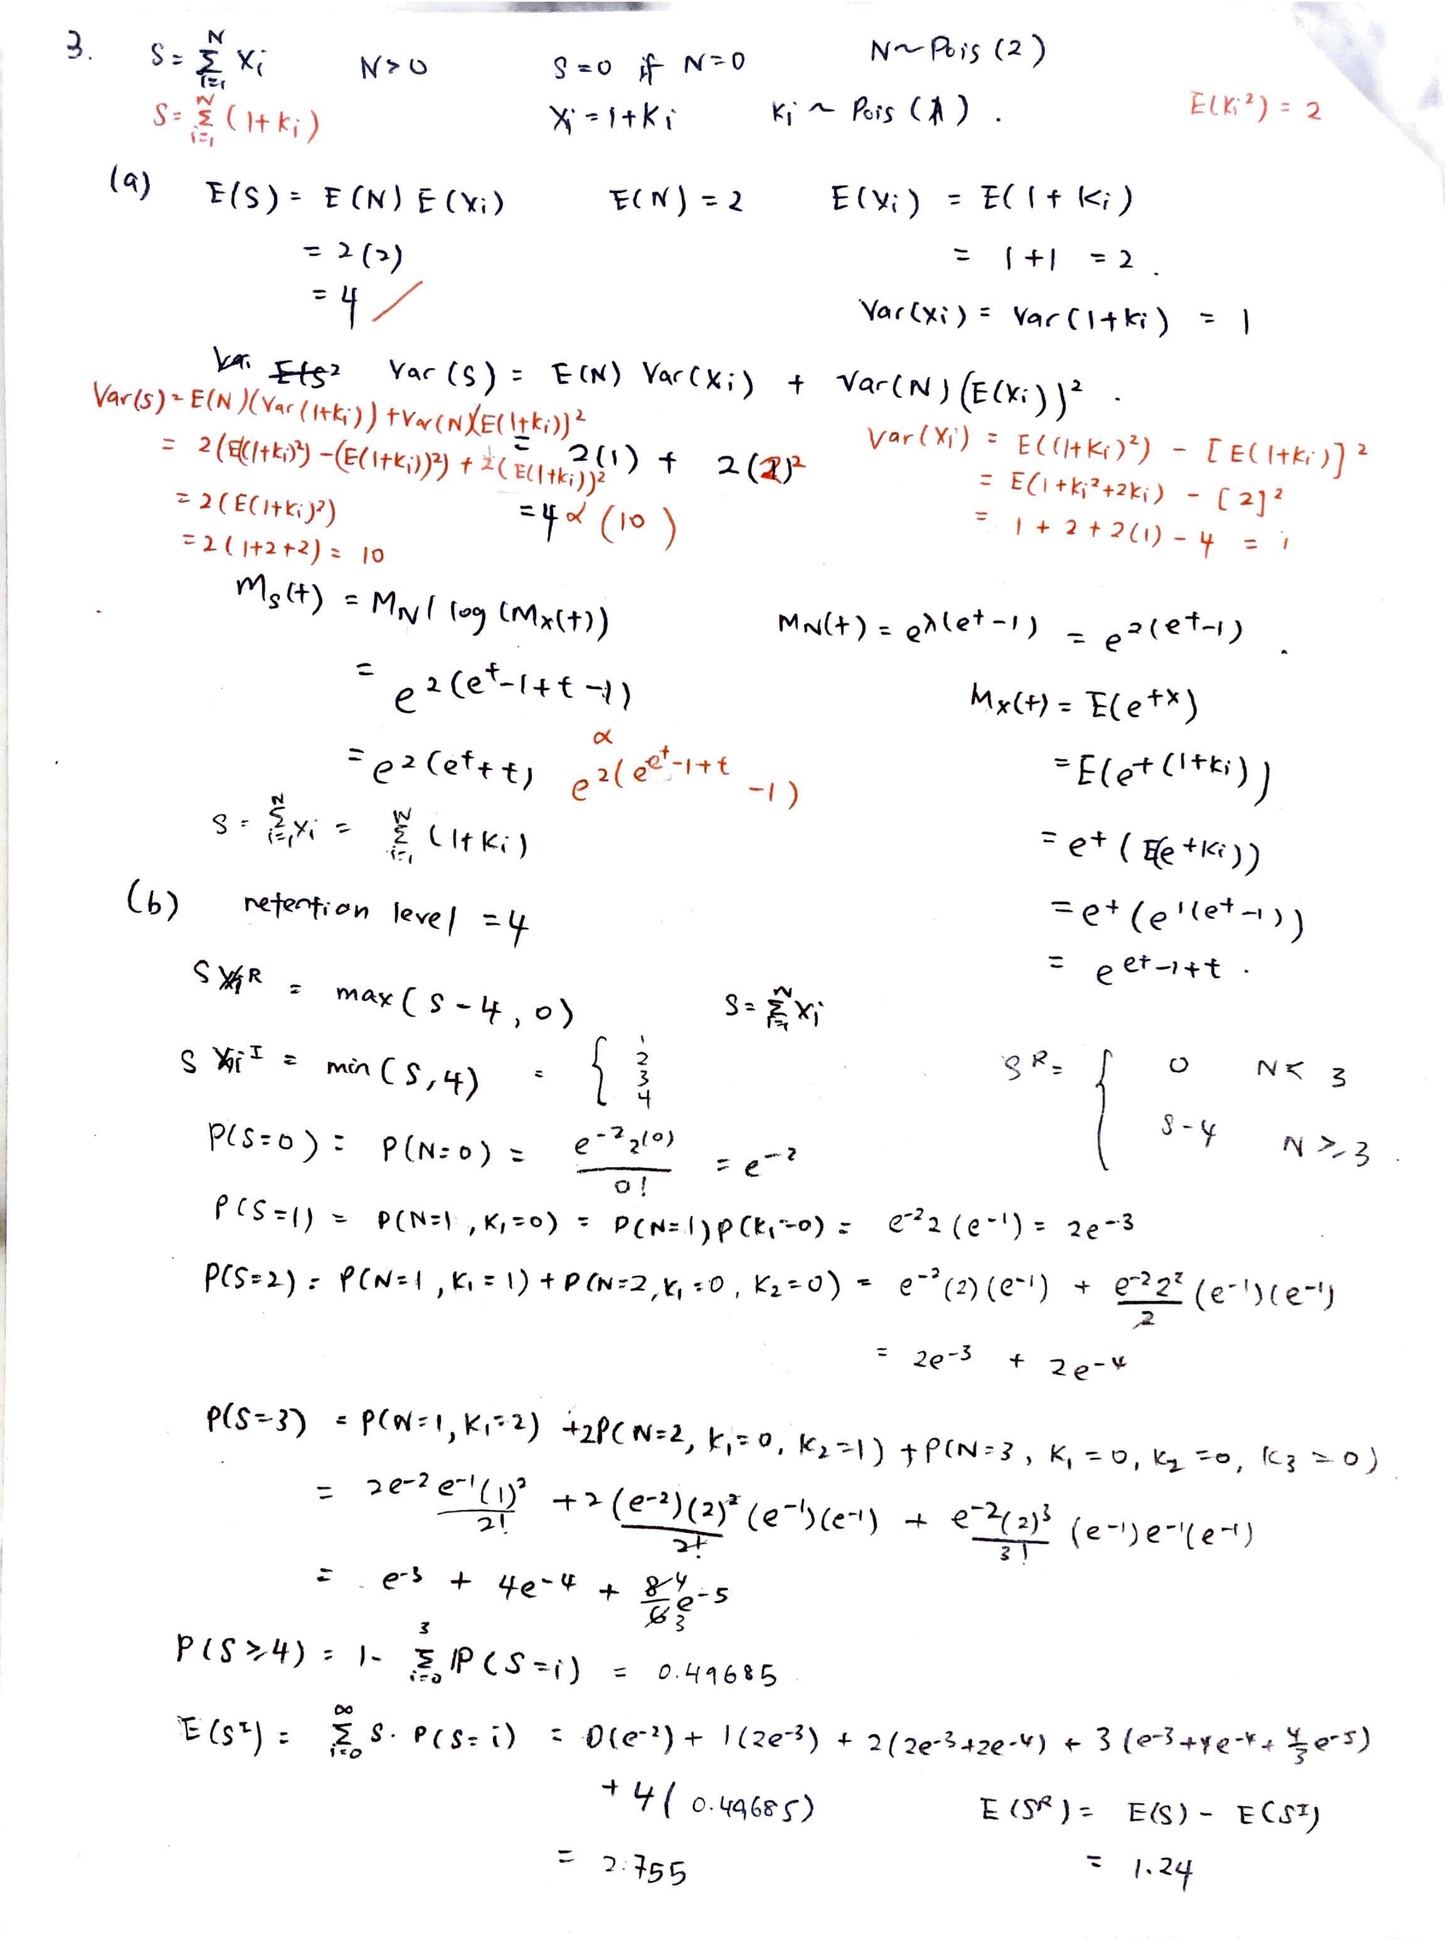 3. S = Σ_{i=1}^{N} Xi   N>0   S=0 if N=0   N~Pois(2)
S = Σ_{i=1}^{N} (1+ki)   Xi = 1+Ki   Ki ~ Pois(1).   E(Ki²) = 2
(a) E(S) = E(N) E(Xi)   E(N) = 2   E(Xi) = E(1+Ki)
= 2(2)   = 1+1 = 2.
= 4   Var(Xi) = Var(1+Ki) = 1
Var(S) = E(N) Var(Xi) + Var(N)(E(Xi))².
Var(S) = E(N)(Var(1+ki)) + Var(N)(E(1+ki))²
= 2(E((1+ki)²) - (E(1+ki))²) + 2(E(1+ki))²
= 2(E(1+ki)²)
= 2(1+2+2) = 10
= 2(1) + 2(2)²
= 4 α (10)
Var(Xi) = E((1+Ki)²) - [E(1+Ki)]²
= E(1+Ki²+2Ki) - [2]²
= 1 + 2 + 2(1) - 4 = 1
Ms(t) = MN(log(Mx(t))   MN(t) = e^{λ(e^t-1)} = e^{2(e^t-1)}.
= e^{2(e^t-1+t-1)}   Mx(t) = E(e^{tx})
= e^{2(e^t+t)}   α e^{2(e^{e^t-1+t}-1)}   = E(e^{t(1+Ki)})
S = Σ_{i=1}^{N} Xi = Σ_{i=1}^{N} (1+Ki)   = e^t (E(e^{tKi}))
= e^t (e^{1(e^t-1)})
= e^{e^t-1+t}.
(b) retention level = 4
S^R = max(S-4, 0)   S = Σ_{i=1}^{N} Xi
S^I = min(S,4) = { 1 2 3 4   S^R = { 0   N< 3
S-4   N≥3.
P(S=0) = P(N=0) = e^{-2}2^{(0)}/0! = e^{-2}
P(S=1) = P(N=1, K₁=0) = P(N=1)P(K₁=0) = e^{-2}2(e^{-1}) = 2e^{-3}
P(S=2) = P(N=1, K₁=1) + P(N=2, K₁=0, K₂=0) = e^{-2}(2)(e^{-1}) + e^{-2}2²/2 (e^{-1})(e^{-1})
= 2e^{-3} + 2e^{-4}
P(S=3) = P(N=1, K₁=2) + 2P(N=2, K₁=0, K₂=1) + P(N=3, K₁=0, K₂=0, K₃=0)
= 2e^{-2} e^{-1}(1)²/2! + 2 (e^{-2})(2)²/2! (e^{-1})(e^{-1}) + e^{-2}(2)³/3! (e^{-1})e^{-1}(e^{-1})
= e^{-3} + 4e^{-4} + 8 4/6 3 e^{-5}
P(S≥4) = 1- Σ_{i=0}^{3} P(S=i) = 0.49685
E(S^I) = Σ_{i=0}^{∞} S·P(S=i) = 0(e^{-2}) + 1(2e^{-3}) + 2(2e^{-3}+2e^{-4}) + 3(e^{-3}+4e^{-4}+4/3 e^{-5})
+ 4(0.49685)   E(S^R) = E(S) - E(S^I)
= 2.755   = 1.24